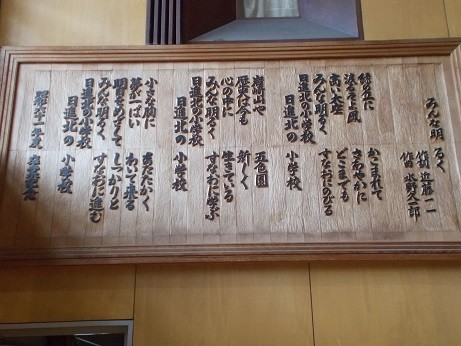 みんな明るく
作詞 近藤一二
作曲 水野久一郎
緑の丘に かこまれて
渡る風 さわやかに
高い大空 どこまでも
みんな明るく すなおにのびる
日進北の小学校
日進北の 小学校
岩崎山や 五色園
歴史は今も 新しく
心の中に 生きている
みんな明るく すなおに学ぶ
日進北の小学校
日進北の 小学校
小さな胸に あたたかく
夢が一ぱい わいて来る
明日をめざして しっかりと
みんな明るく すなおに進む
日進北の小学校
日進北の 小学校